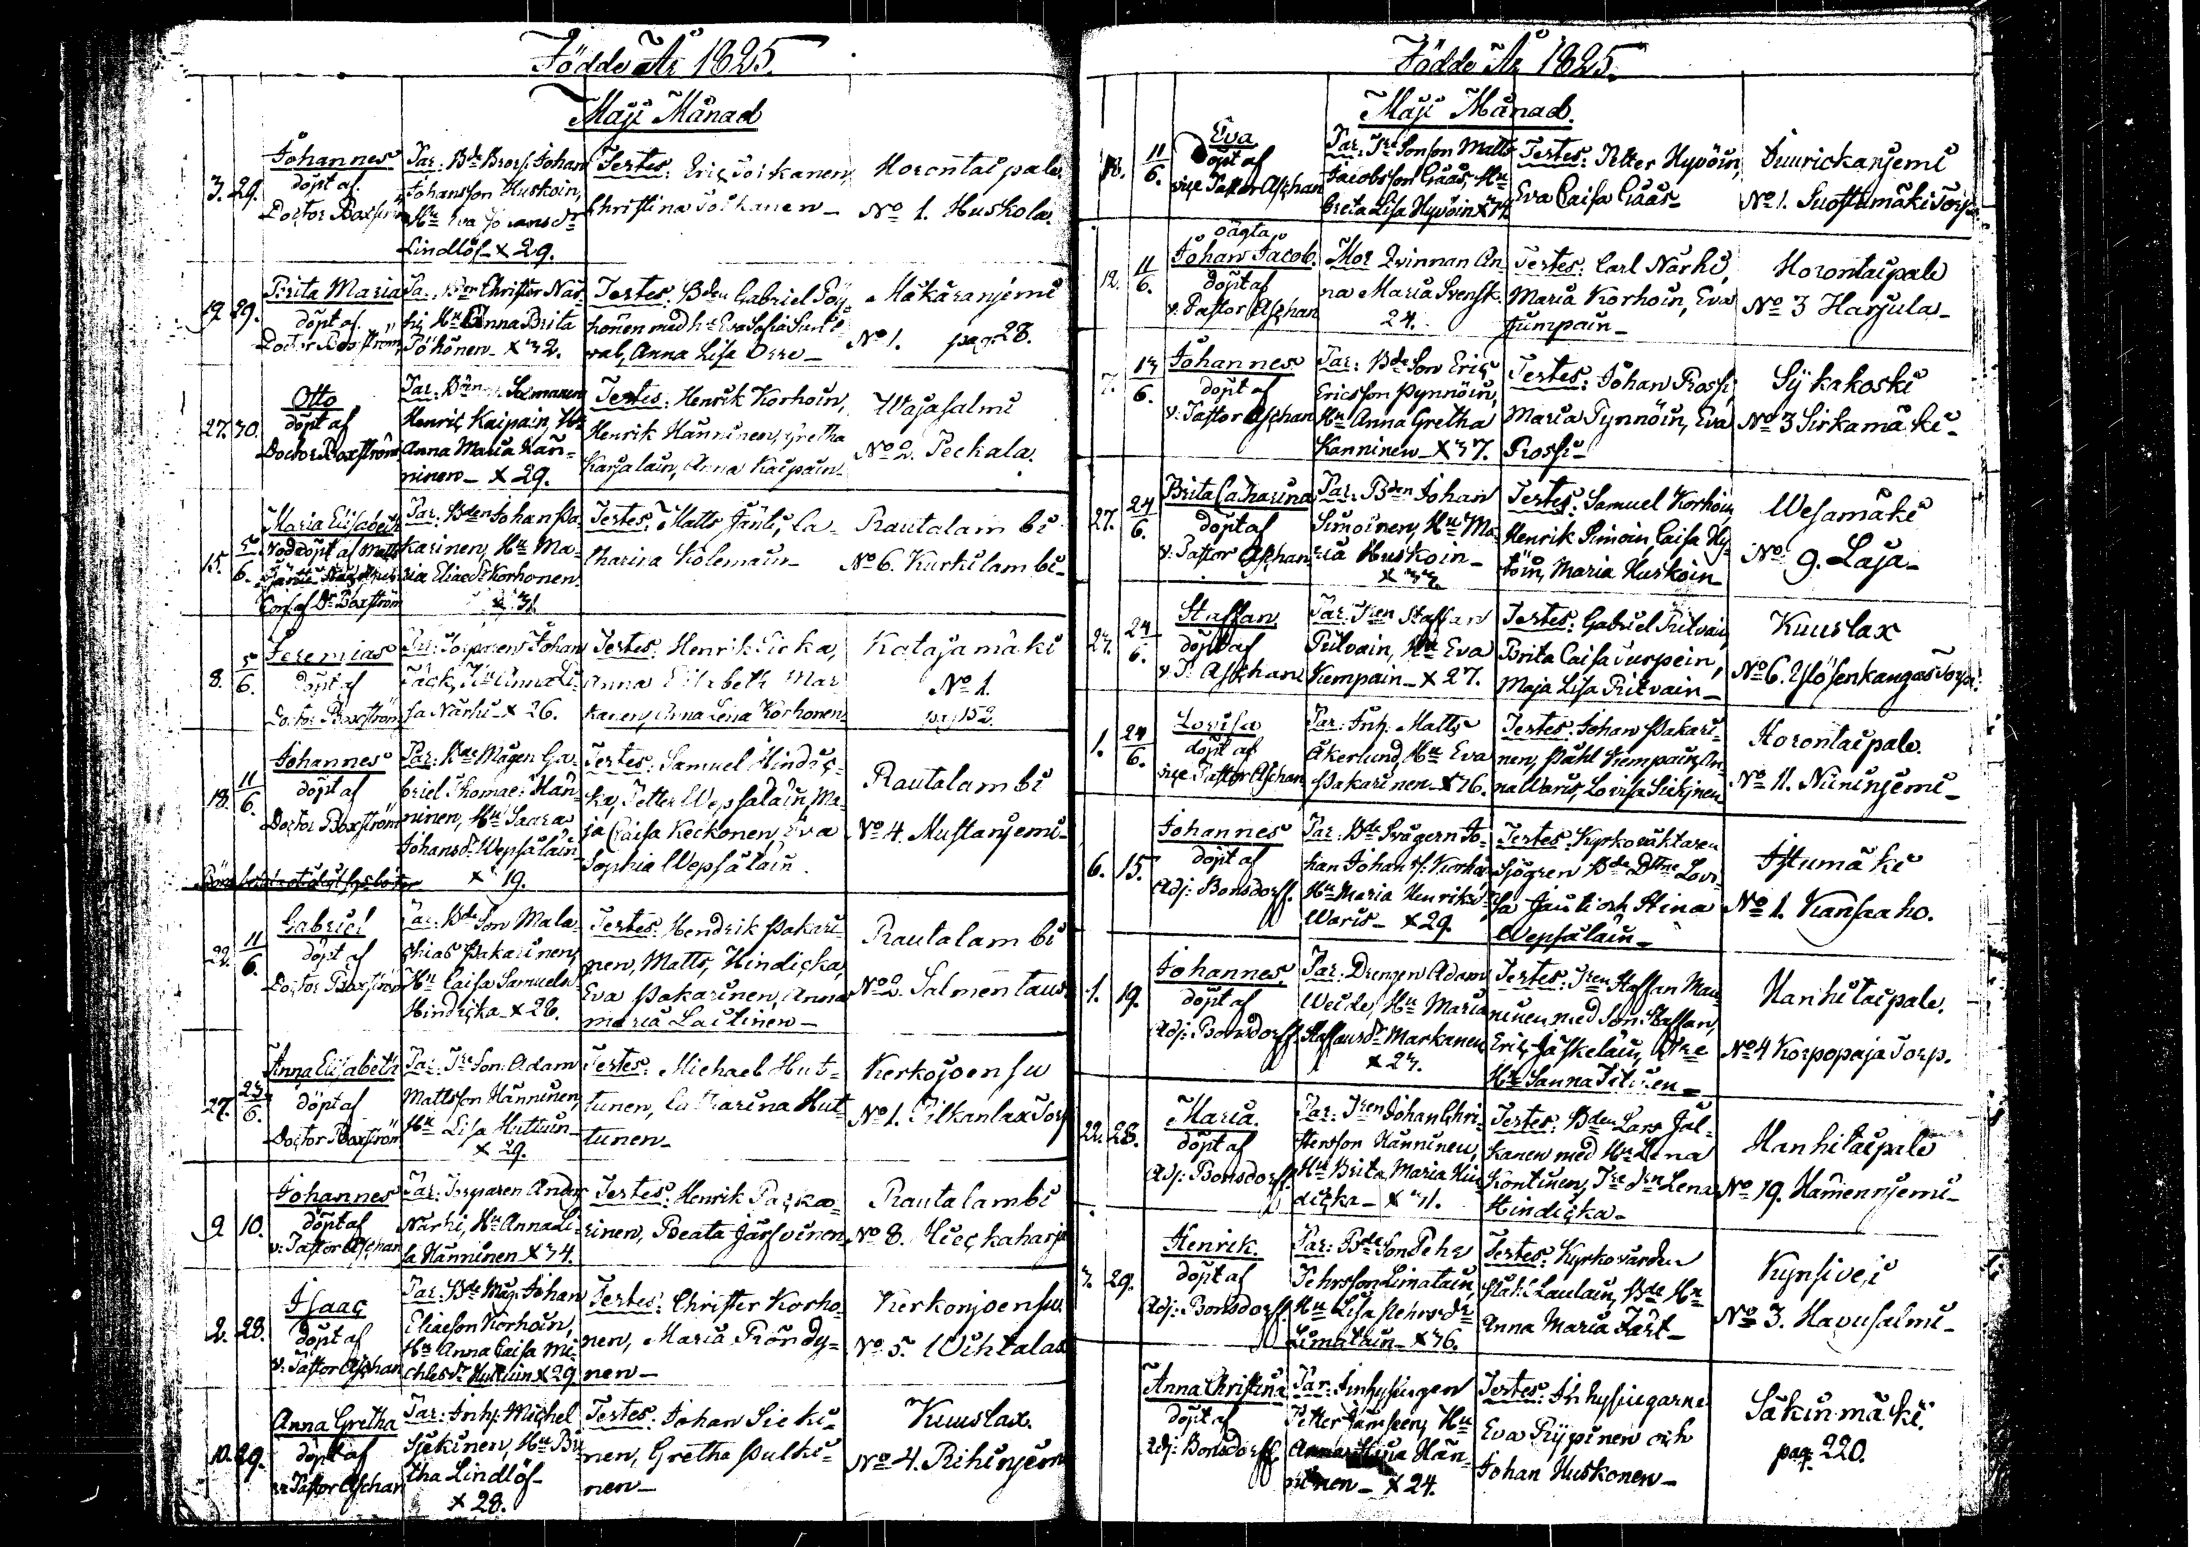 Födde År 1825.
Maji Månad
3. 29.
Johannes
döpt af
Doctor Boxström
Par: Bde Brors. Johan
Johansson Huskoin,
Hu Eva Johansdr
Lindlöf - x 29.
Testes: Eric Toikanen,
Christina Toikanen -
Horontaipale
No 1. Huskola.
19. 29.
Brita Maria
döpt af
Doctor Boxström
Par: Bden Christer När-
hi, Hu Anna Brita
Pöhönen - x 32.
Testes: Bden Gabriel Pöy-
hönen med h. Eva Sofia
Anna Lisa Orre -
Makaranjemi
No 1. pag. 28.
27. 30.
Otto
döpt af
Doctor Boxström
Par:
Henric Kaipain, Hu
Anna Maria Hän-
ninen - x 29.
Testes: Henrik Korhoin,
Henrik Hänninen, Gretha
Karjalain, Anna Kaipain
Wajasalmi
No 2. Peckala.
15. 5/6.
Maria Elisabeth
Nöddöpt af Matts
Jänti
Conf. af Dr Boxström
Par: Bden Johan Pa-
karinen, Hu Ma-
ria Eliaedr Korhonen
x 31
Testes: Matts Jänti, Ca-
tharina Kolemain -
Rautalambi
No 6. Kurkilambi -
8. 5/6.
Jeremias
döpt af
Doctor Boxström
Par: Torparen Johan
Jack, Hu Anna Li-
sa Närhi - x 26.
Testes: Henrik Sicka,
Anna Elisabeth Mar-
kanen, Anna Lena Korhonen
Katajamäki
No 1.
pag. 152.
18. 11/6.
Johannes
döpt af
Doctor Boxström
Par: Bde Mågen Ga-
briel Thomae: Hän-
ninen, Hu Saara
Johansdr Wepsäläin
x 19.
Testes: Samuel Hindic-
ka, Petter Wepsäläin, Ma-
ja Caisa Keckonen, Eva
Sophia Wepsäläin
Rautalambi
No 4. Mustanjemi -
22. 11/6.
Gabriel
döpt af
Doctor Boxström
Par: Bde Son Mala-
chias Pakarinen,
Hu Caisa Samuelsdr
Hindicka - x 28.
Testes: Hendrik Pakari-
nen, Matts Hindicka,
Eva Pakarinen, Anna
Maria Laitinen -
Rautalambi
No 2. Salmentaus
27. 23/6.
Anna Elisabeth
döpt af
Doctor Boxström
Par: Tre Son Adam
Mattsson Hänninen,
Hu Lisa Huttuin -
x 29.
Testes: Michael Hut-
tunen, Catharina Hut-
tunen -
Kerkojoensu
No 1. Pilkanlax Torp
9. 10.
Johannes
döpt af
v: Pastor Aschan
Par: Torparen Anders
Närhi, Hu Anna Li-
sa Hänninen x 34.
Testes: Henrik Packa-
rinen, Beata Järfvinen
Rautalambi
No 8. Hieckaharju
2. 28.
Isaac
döpt af
v: Pastor Aschan
Par: Bde Måg. Johan
Eliaeson Korhoin,
Hu Anna Caisa Mi-
chlsdr Huttuin x 29
Testes: Christer Korho-
nen, Maria Röndy-
nen -
Kerkonjoensu
No 5. Wihtalax
10. 29.
Anna Gretha
döpt af
v: Pastor Aschan
Par: Inh. Michel
Siekinen, Hu Bri-
tha Lindlöf -
x 28.
Testes: Johan Sieki-
nen, Gretha Pulki-
nen -
Kuuslax.
No 4. Rihinjemi
Födde År 1825.
Maji Månad.
18. 11/6.
Eva
döpt af
vice Pastor Aschan
Par: Tre Sonson Matts
Jacobsson Gråås, Hu
Greta Lisa Hyvöin x 34
Testes: Petter Hyvöin,
Eva Caisa Gråås -
Juurickanjemi
No 1. Suostumäki Torp
12. 11/6.
oägta
Johan Jacob.
döpt af
v. Pastor Aschan
Mor Qvinnan An-
na Maria Svensk.
24.
Testes: Carl Närhi,
Maria Korhoin, Eva
Jumpain -
Horontaipale
No 3 Harjula -
7. 13/6.
Johannes
döpt af
v: Pastor Aschan
Par: Bde Son Eric
Ericsson Pynnöin,
Hu Anna Gretha
Kanninen - x 37.
Testes: Johan Rossi,
Maria Pynnöin, Eva
Rossi -
Sykäkoski
No 3 Sirkamäki -
27. 24/6.
Brita Catharina
döpt af
v. Pastor Aschan
Par: Bden Johan
Simoinen, Hu Ma-
ria Huskoin -
x 33.
Testes: Samuel Korhoin
Henrik Simoin, Caisa Hy-
töin, Maria Huskoin
Wesamäki
No 9. Laja -
23. 24/6.
Staffan
döpt af
v. P. Aschan
Par: Tren Staffan
Ritvain, Hu Eva
Kempain - x 27.
Testes: Gabriel Ritvain,
Brita Caisa Turpein,
Maja Lisa Ritvain -
Kuuslax
No 6. Ylösenkangas Torp.
1. 24/6.
Lovisa
döpt af
vice Pastor Aschan
Par: Inh. Matts
Åkerlund, Hu Eva
Pakarinen - x 36.
Testes: Johan Pakari-
nen, Påhl Kempain, An-
na Waris, Lovisa Siekinen
Horontaipale.
No 11. Nininjemi -
6. 15.
Johannes
döpt af
Adj: Bonsdorff.
Par: Bde Svågern Jo-
han Johans. Korhoin
Hu Maria Henriksdr
Waris - x 29.
Testes: Kyrkovaktaren
Sjögren Bde Dttne Lovi-
sa Jänti och Stina
Wepsäläin -
Istumäki
No 1. Kansaaho.
1. 19.
Johannes.
döpt af
Adj: Bonsdorff.
Par: Drengen Adam
Weide, Hu Maria
Staffansdr Markanen
x 23.
Testes: Tren Staffan Man-
ninen med Son: Staffan,
Eric Jäskeläin, Tre
Hu Sanna Titinen -
Hanhitaipale.
No 4 Korpopaja Torp.
22. 28.
Maria.
döpt af
Adj: Bonsdorff
Par: Tren Johan Chri-
stersson Hänninen,
Hu Brita Maria Hin-
dicka - x 31.
Testes: Bden Lars Jal-
kanen med Hu Lena
Kontinen, Tre Drn Lena
Hindicka -
Hanhitaipale
No 19. Hamennjemi -
3. 29.
Henrik.
döpt af
Adj: Bonsdorff.
Par: Bde Son Pehr
Pehrsson Limatain,
Hu Lisa Pehrsdr
Limatain - x 36.
Testes: Kyrkovärden
Påhl Laulain, Bde Hu
Anna Maria Tart -
Kynsivesi
No 3. Havusalmi -
Anna Christina
döpt af
Adj: Bonsdorff
Par: Inhysingen
Petter Jämsen, Hu
Anna Hän-
ninen - x 24.
Testes: Inhysingarne
Eva Ryypinen och
Johan Huskonen -
Säkinmäki
pag. 220.